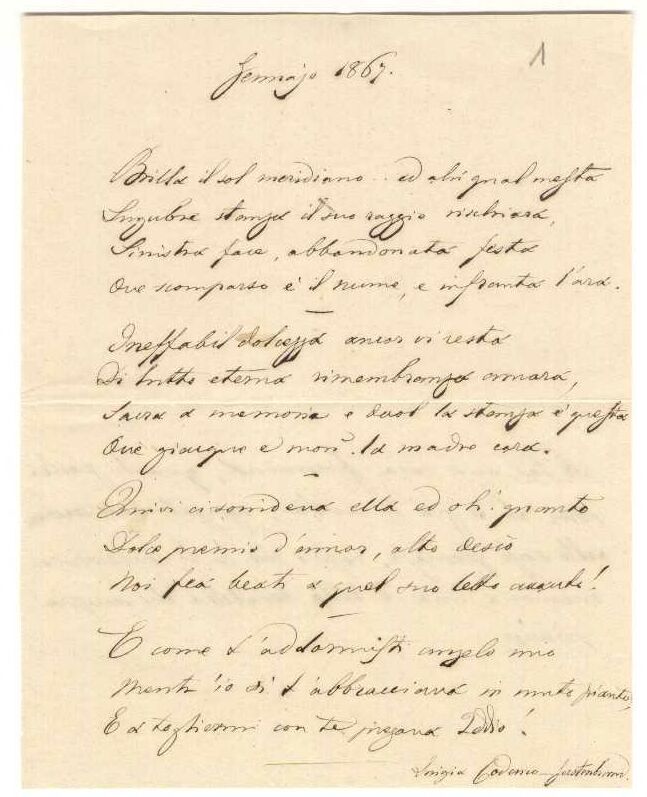 1
Gennajo 1867.
Brilla il sol meridiano.. ed ahi qual mesta
Lugubre stanza il suo raggio rischiara,
Sinistra face, abbandonata festa
Ove scomparso è il nume, e infranta l'ara.
Ineffabil dolcezza ancor vi resta
Di lutto eterna rimembranza amara,
Sacra a memoria e duol la stanza è questa
Ove giacque e morì la madre cara.
Quivi ci sorrideva ella ed oh! quanto
Dolce premio d'amor, alto desio
Noi fea beati a quel suo letto accanto!
E come t'addormisti angelo mio
Mentr'io sì t'abbracciava in muto pianto,
E a togliermi con te pregava Iddio!
Luigia Codemo